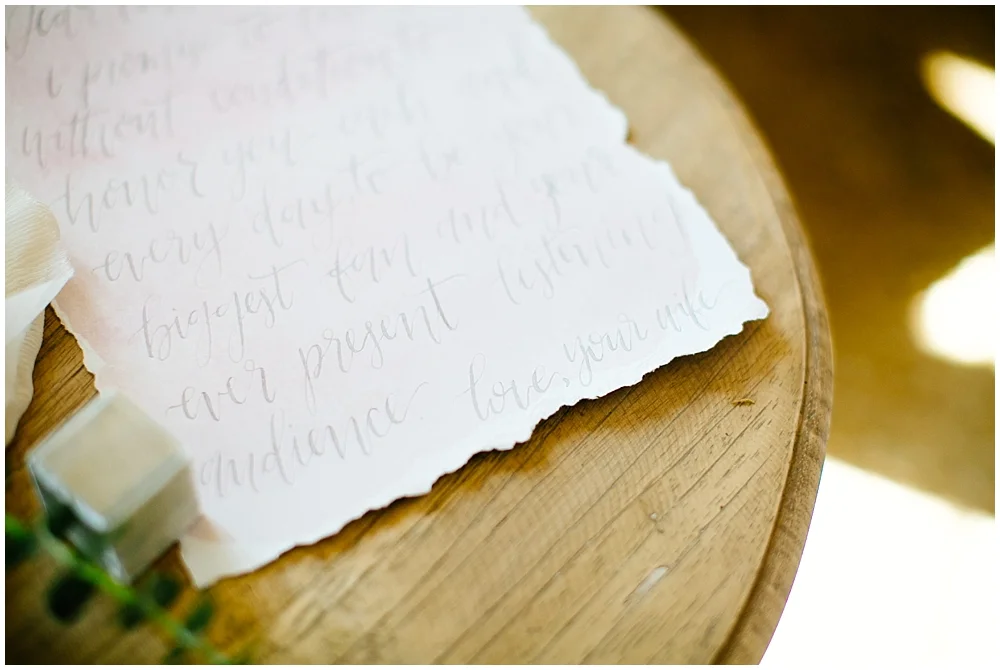 Dear
i promise to
without conditions
honor you each and
every day, to be your
biggest fan and your
ever present listening
audience. love, your wife